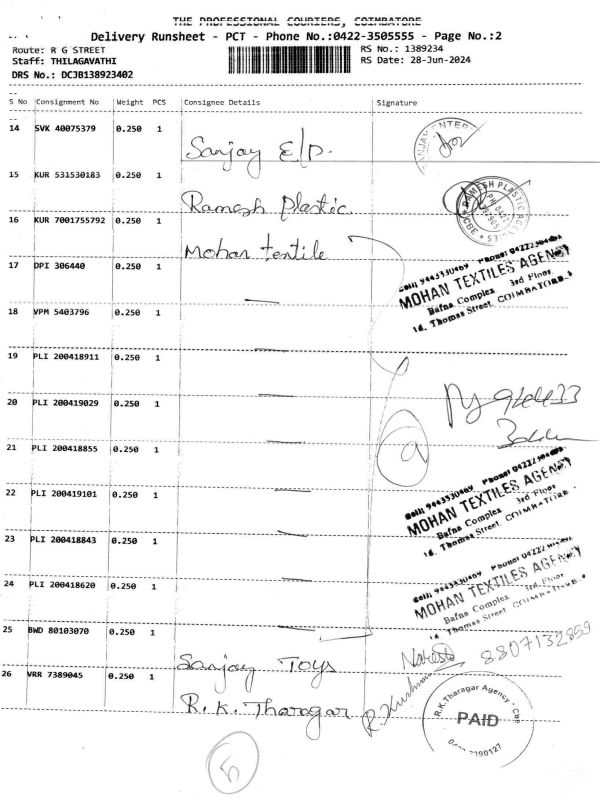 THE PROFESSIONAL COURIERS, COIMBATORE
Delivery Runsheet - PCT - Phone No.:0422-3505555 - Page No.:2
Route: R G STREET
Staff: THILAGAVATHI
DRS No.: DCJB138923402
RS No.: 1389234
RS Date: 28-Jun-2024
S No Consignment No Weight PCS Consignee Details Signature
14 SVK 40075379 0.250 1 Sanjay E/P.
SANJAY ENTER
15 KUR 531530183 0.250 1 Ramesh Plastic
RAMESH PLASTIC
CBE
16 KUR 7001755792 0.250 1 Mohan textile
17 DPI 306440 0.250 1
Cell: 9443330469 Phone: 04222
MOHAN TEXTILES AGENCY
Bafna Complex 3rd Floor
16, Thomas Street, COIMBATORE.
18 VPM 5403796 0.250 1
19 PLI 200418911 0.250 1
20 PLI 200419029 0.250 1
21 PLI 200418855 0.250 1
9
22 PLI 200419101 0.250 1
Cell: 9443330469 Phone: 04222
MOHAN TEXTILES AGENCY
Bafna Complex 3rd Floor
16, Thomas Street, COIMBATORE.
23 PLI 200418843 0.250 1
24 PLI 200418620 0.250 1
Cell: 9443330469 Phone: 04222
MOHAN TEXTILES AGENCY
Bafna Complex 3rd Floor
16, Thomas Street, COIMBATORE.
25 BWD 80103070 0.250 1 Sanjay Toys
8807132859
26 VRR 7389045 0.250 1 R. K. Tharagar
R.K.Tharagar Agency CBE
PAID
5